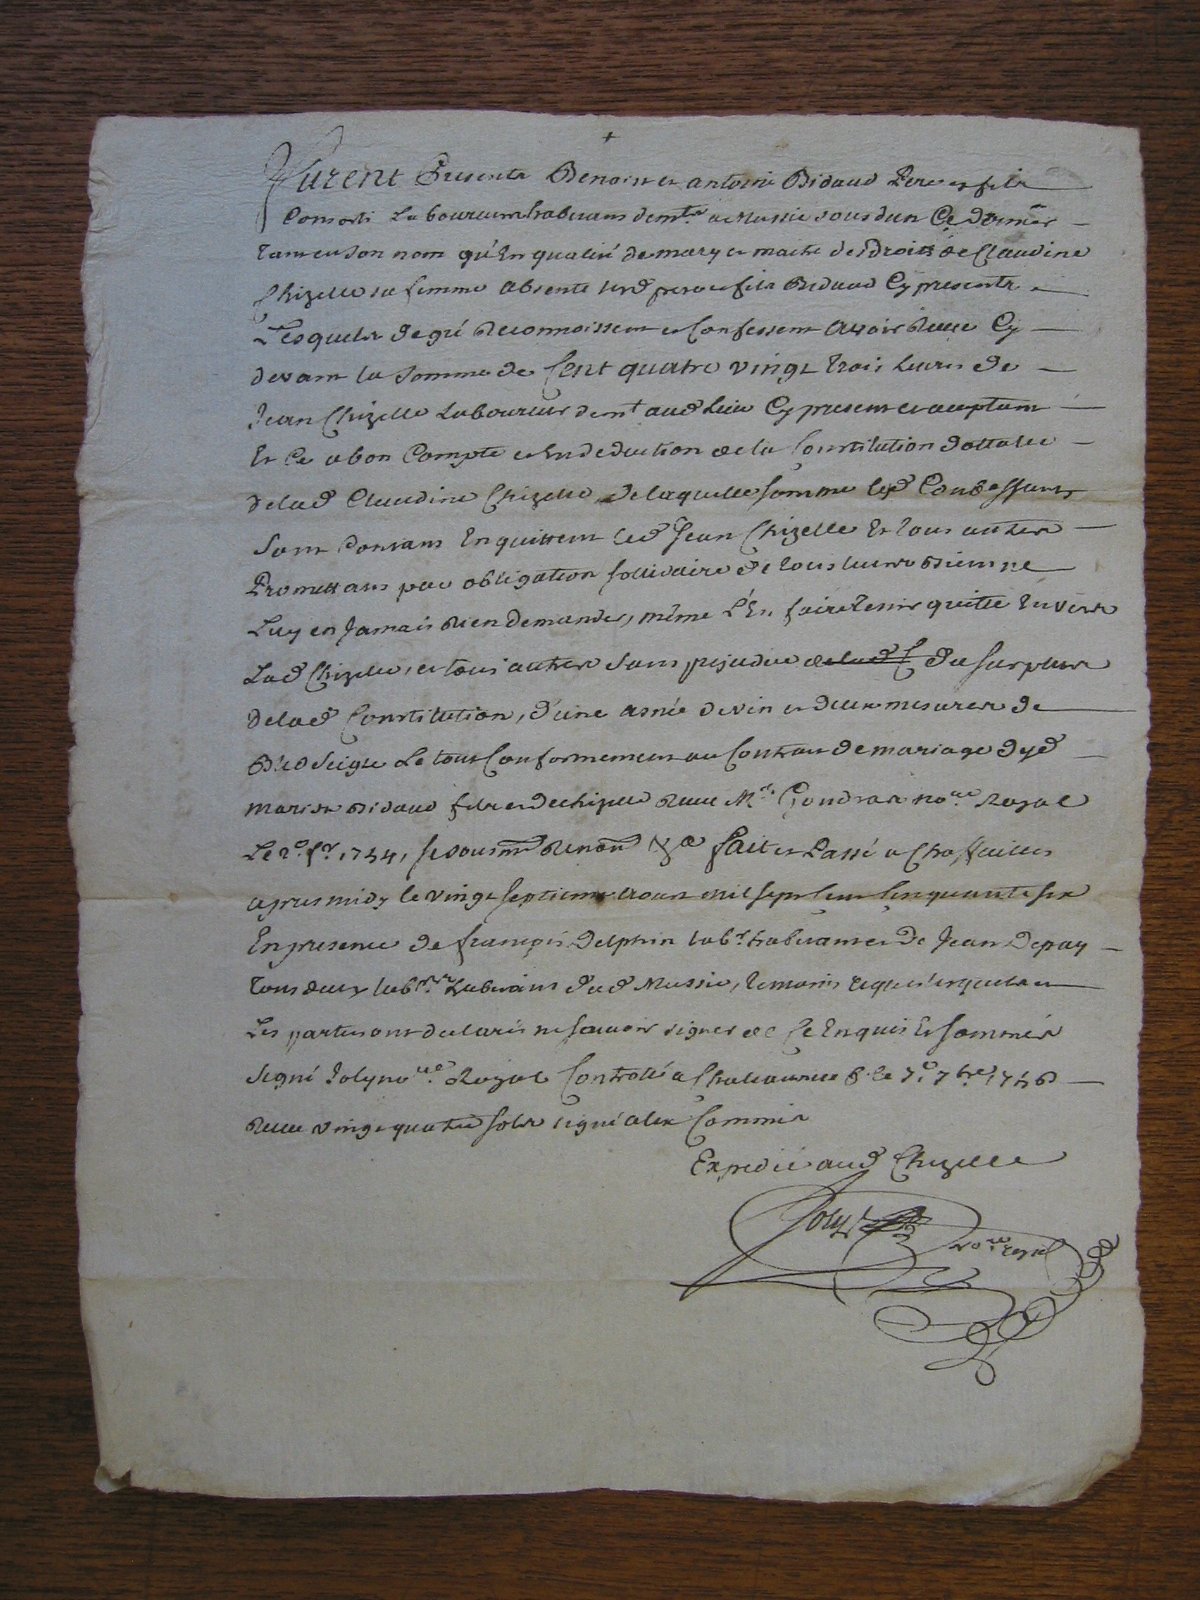 +
Furent Presents Benoit et antoine Bidaud Pere et fils
Consorts Laboureurs habitans demts a Mussie sous dun Ce dernier
tant en Son nom qu'En qualité de mary et maitre des Droits de Claudine
Chizelle sa femme absente lesd pere et fils Bidaud Cy presents
Lesquels de gré Reconnoissent et Confessent avoir Receu Cy
devant la Somme de Cent quatre vingt trois livres de
Jean Chizelle Laboureur demt aud Lieu Cy present et acceptant
Et Ce a bon Compte et En deduction de la Constitution dottalle
de lad Claudine Chizelle de laquelle somme lesd Confessants
Sont Contans En quittent led Jean Chizelle Et tous autres
Promettans par obligation sollidaire de tous leurs Biens ne
Luy en Jamais Rien Demander, même L'En faire tenir quitte Envers
Lad Chizelle, et tous autres Sans prejudice de lad C du Surplus
de lad Constitution, d'une asnée de vin et deux mesures de
Bled Seigle Le tout Conformement au Contrat de mariage dud
Bidaud fils et de Chizelle Receu Me no.re Royal
Le 1754, Se sousmett Renon &a fait et Passé a Chaffailles
apres midy le vingt septieme aout mil sept Cent Cinquante six
En presence de françois Delphin labr habitant et de Jean Depay
tous deux labrs habitans dud Mussie, temoins Requis lesquels et
Les parties ont declarés ne sçavoir signer de Ce Enquis Et sommés
Signé Joly no.re Royal Controllé a Chateauneuf le 7e 7bre 1756
Receu vingt quatre sols signé alex Commis
Expedié aud Chizelle
Joly
no.re royal